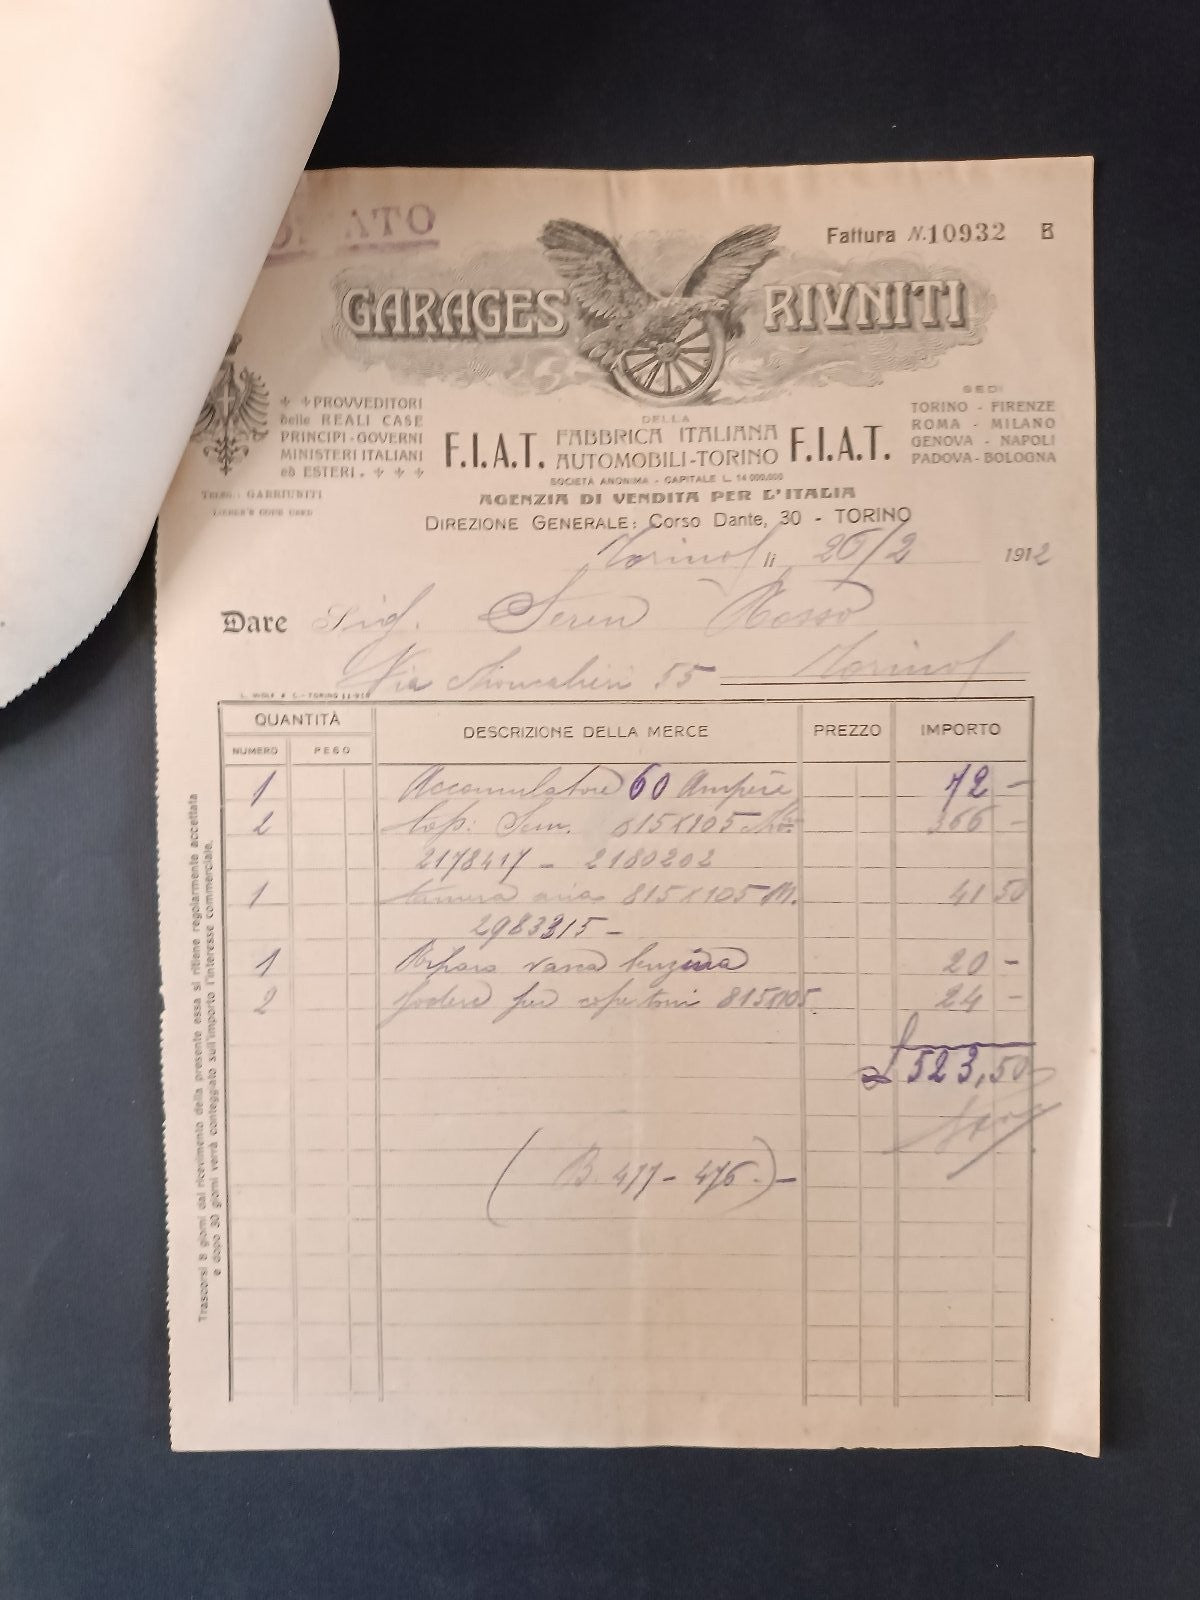 ATO
Fattura N. 10932 B
GARAGES RIVNITI
PROVVEDITORI
delle REALI CASE
PRINCIPI - GOVERNI
MINISTERI ITALIANI
ed ESTERI.
Teleg.: GARRIUNITI
LIEBER'S CODE USED
DELLA
F.I.A.T. FABBRICA ITALIANA AUTOMOBILI - TORINO F.I.A.T.
SOCIETÀ ANONIMA - CAPITALE L. 14.000.000
AGENZIA DI VENDITA PER L'ITALIA
DIREZIONE GENERALE: Corso Dante, 30 - TORINO
SEDI
TORINO - FIRENZE
ROMA - MILANO
GENOVA - NAPOLI
PADOVA - BOLOGNA
Torino li 26/2 1912
Dare Sig. Seren Rosso
Via Moncalieri 55 Torino
L. WOLF & C. - TORINO
QUANTITÀ DESCRIZIONE DELLA MERCE PREZZO IMPORTO
NUMERO PESO
1 Accumulatore 60 Ampère 72 -
2 Cop: Sem. 815x105 366 -
2178417 - 2180202
1 Camera aria 815x105 M. 41 50
2983315 -
1 Ripara vasca benzina 20 -
2 fodere per copertoni 815x105 24 -
£ 523,50
( B. 477 - 476 - ) -
Trascorsi 8 giorni dal ricevimento della presente essa si ritiene regolarmente accettata
e dopo 30 giorni verrà conteggiato sull'importo l'interesse commerciale.